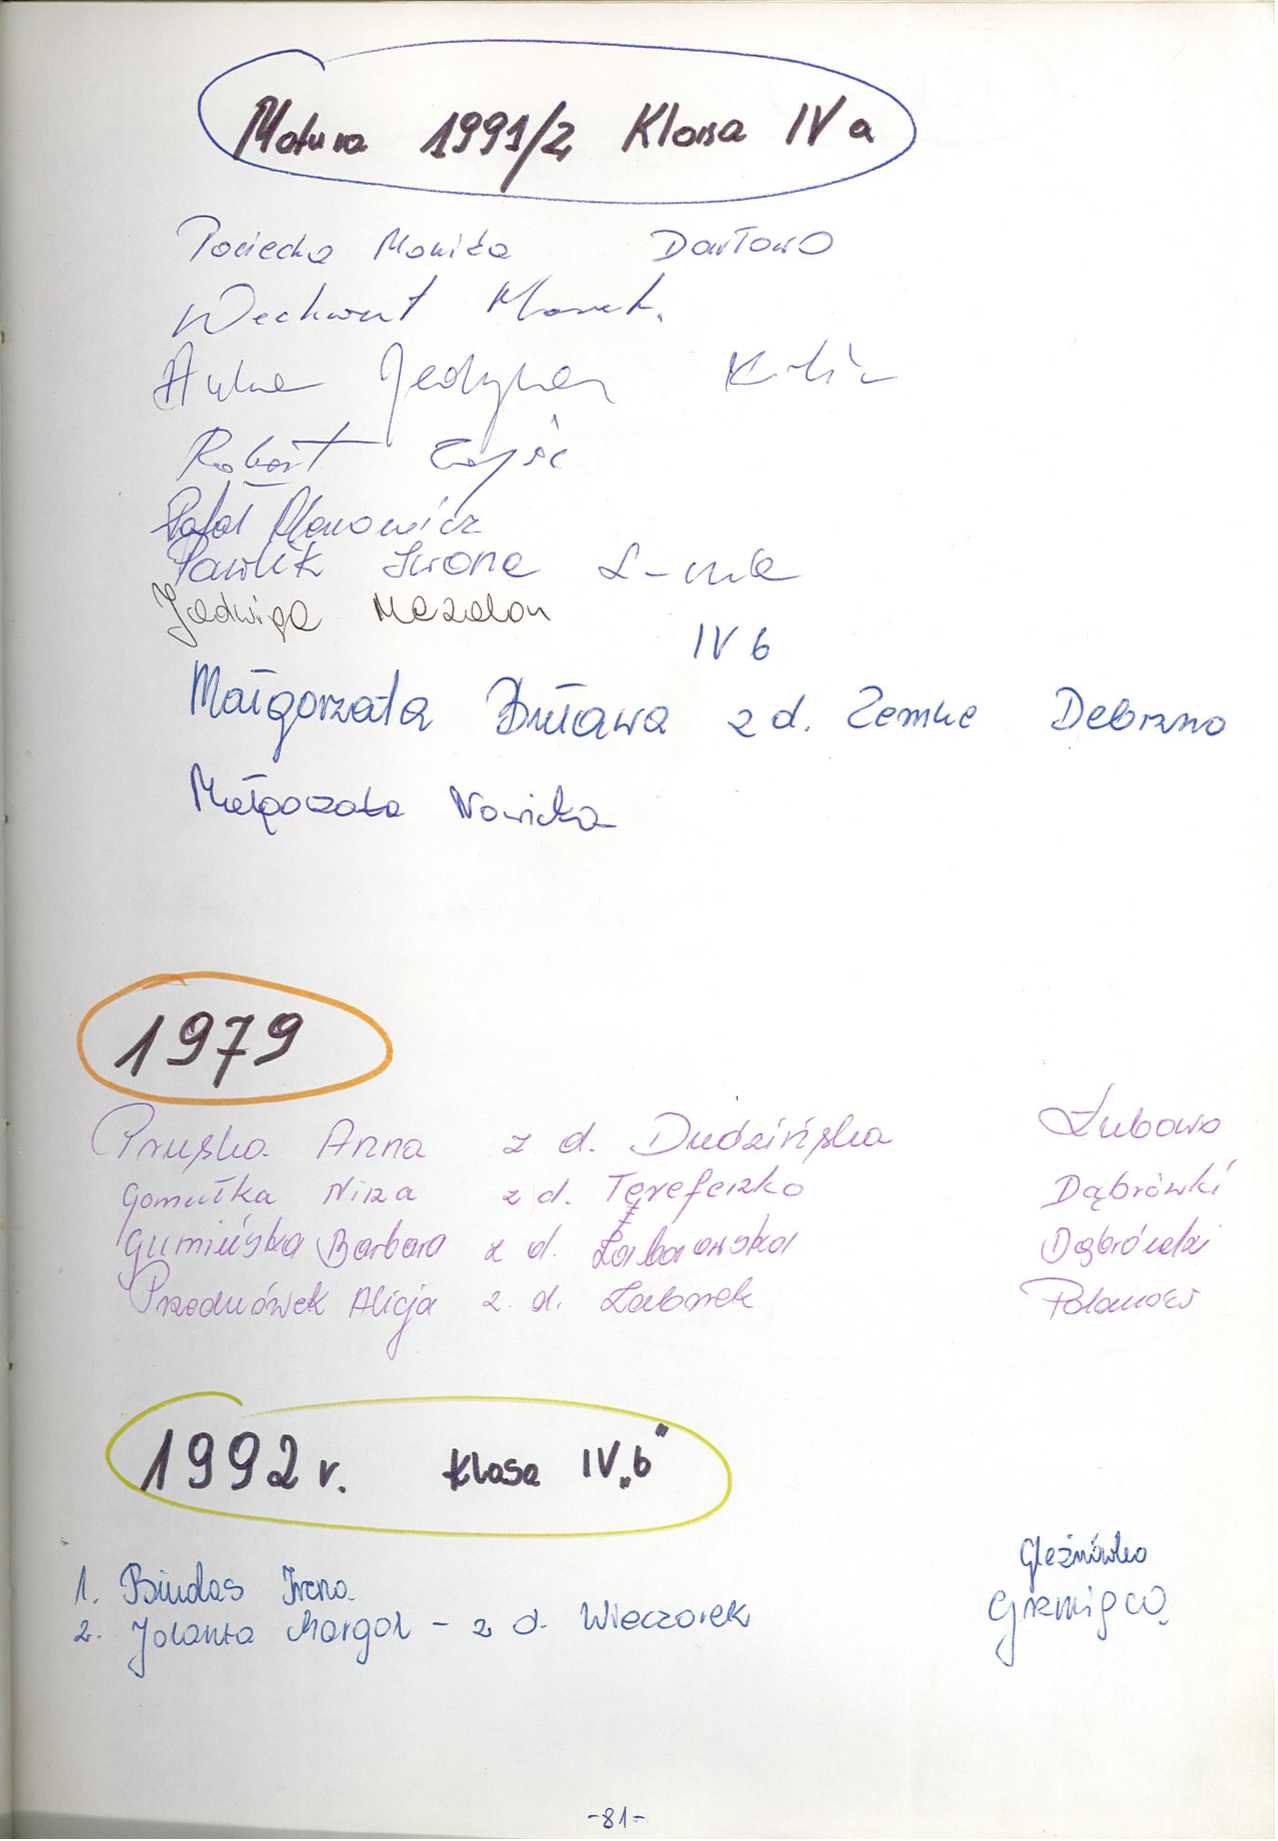 Matura 1991/2 Klasa IV a
Pociecha Monika Darłowo
Wechwert Marek.
Jedynak
Robert Zając
Rafał
Pawlik Iwona
Jadwiga Mazelon
IV b
Małgorzata Buława z d. Zemke Debrzno
Małgorzata Nowicka
1979
Pruska Anna z d. Dudzińska Łubowo
Gomułka Nina z d. Tereferzko Dąbrówki
Gumieńska Barbara z d. Dąbrówki
Przednówek Alicja z. d. Laborek Polanów
1992 r. klasa IV „b"
1. Bindas Irena Gleźnówko
2. Jolanta Margol - z d. Wieczorek Grzmiąca
-81-